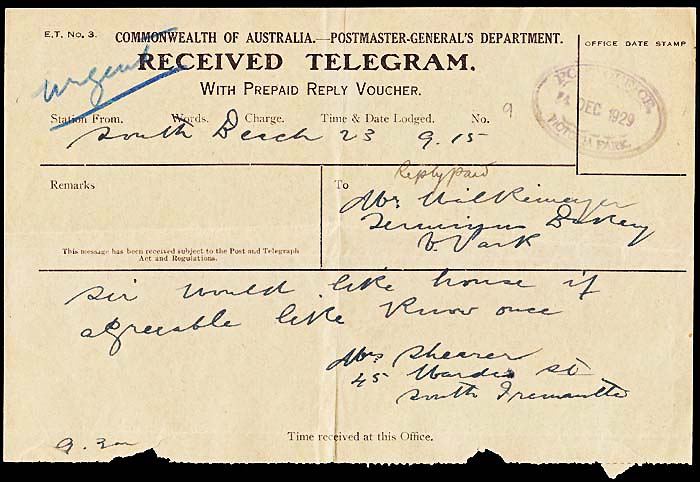 E.T. No. 3.
COMMONWEALTH OF AUSTRALIA.—POSTMASTER-GENERAL'S DEPARTMENT.
RECEIVED TELEGRAM.
WITH PREPAID REPLY VOUCHER.
urgent
OFFICE DATE STAMP
POST OFFICE
DEC 1929
VICTORIA PARK
Station From. Words. Charge. Time & Date Lodged. No. 9
South Beach 23 9.15
Reply paid
Remarks
To
Mr
Terminus Bakery
V. Park
This message has been received subject to the Post and Telegraph
Act and Regulations.
Sir would like house if
agreeable like know once
Mrs Shearer
45 St
South Fremantle
Time received at this Office.